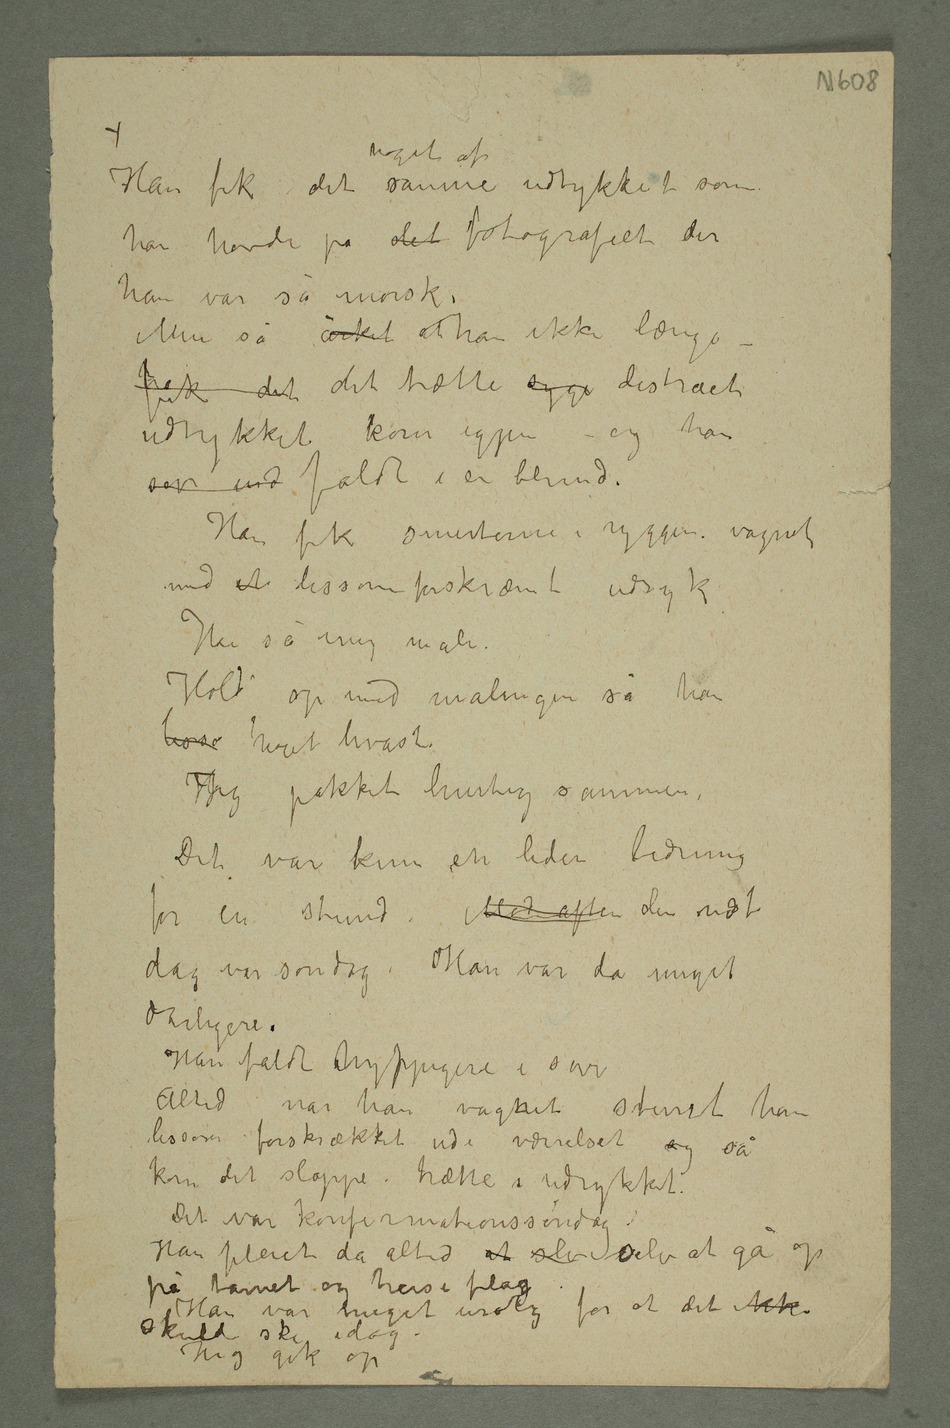 N608
+
noget af
Han fik det samme udtrykket som
han havde på det fotografiet der
han var så morsk.
Men så orket at han ikke længe –
fik det det trætte syge distraet
udtrykket kom igjen – og han
sov ind faldt i en blund.
Han fik smerterne i ryggen. vagnet
med et lissom forskræmt udtryk
Han så mig male.
Hold op med malingen så han
lisso noget hvast.
Jeg pakket hurtig sammen.
Det var kun en liden bedring
for en stund. Mod aften den næst
dag var søndag. Han var da meget
dårligere.
Han faldt hyppigere i søvn
Altid når han vagnet stirret han
lissom forskrækket ud i værelset og så
kom det slappe. trætte i udtrykket.
Det var konfirmationssøndag.
Han pleiet da altid at selv selv at gå op
på tårnet og heise flag.
Han var meget urolig for at det ikke
skulde ske idag.
Jeg gik op